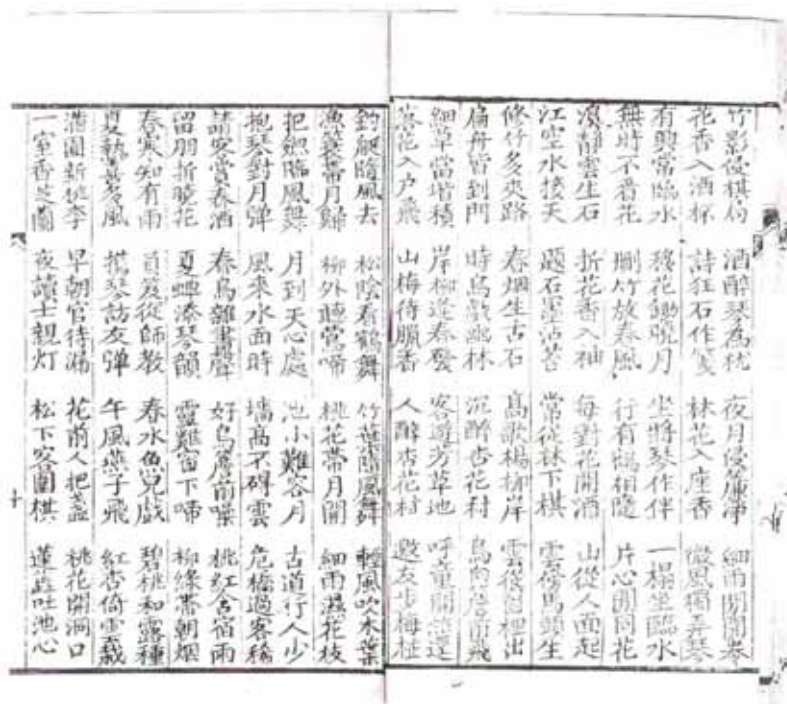 竹影侵棋局 酒醉琴為枕 夜月侵簾净 細雨閉門琴
花香入酒杯 詩狂石作箋 林花入座香 微風獨弄琴
有興常臨水 移花鋤晓月 坐將琴作伴 一榻坐臨水
無時不看花 删竹放春風 行有鶴相隨 片心閒同花
静雲生石 折花香入袖 每對花開酒 山從人面起
江空水接天 題石墨沾苔 常從林下棋 雲傍馬頭生
修竹多夾路 春烟生古石 高歌楊柳岸 雲從窗裡出
扁舟皆到門 時鳥戯幽林 沉醉杏花村 鳥向簷前飛
細草當堦積 岸柳逢春發 客遊芳草地 呼童開
落花入户飛 山梅待臘香 人醉杏花村 邀友步梅
釣艇隨風去 松陰看鶴舞 竹葉隨風舞 輕風吹木葉
漁蓑帶月歸 柳外聽鶯啼 桃花帶月開 細雨濕花枝
把劍臨風舞 月到天心處 池小難容月 古道行人少
抱琴對月弹 風來水面時 墻高不碍雲 危橋過客稀
請客賞春酒 春鳥雜書聲 好鳥簷前噪 桃紅含宿雨
留朋折曉花 夏蟬添琴韻 靈雞窗下啼 柳綠帶朝烟
春寒知有雨 負笈從師教 春水魚兒戯 碧桃和露種
夏熱喜多風 携琴訪友弹 午風燕子飛 紅杏倚雲栽
满園新桃李 早朝官待漏 花前人把盞 桃花開洞口
一室香芝蘭 夜讀士親灯 松下客圍棋 蓮蕋吐池心